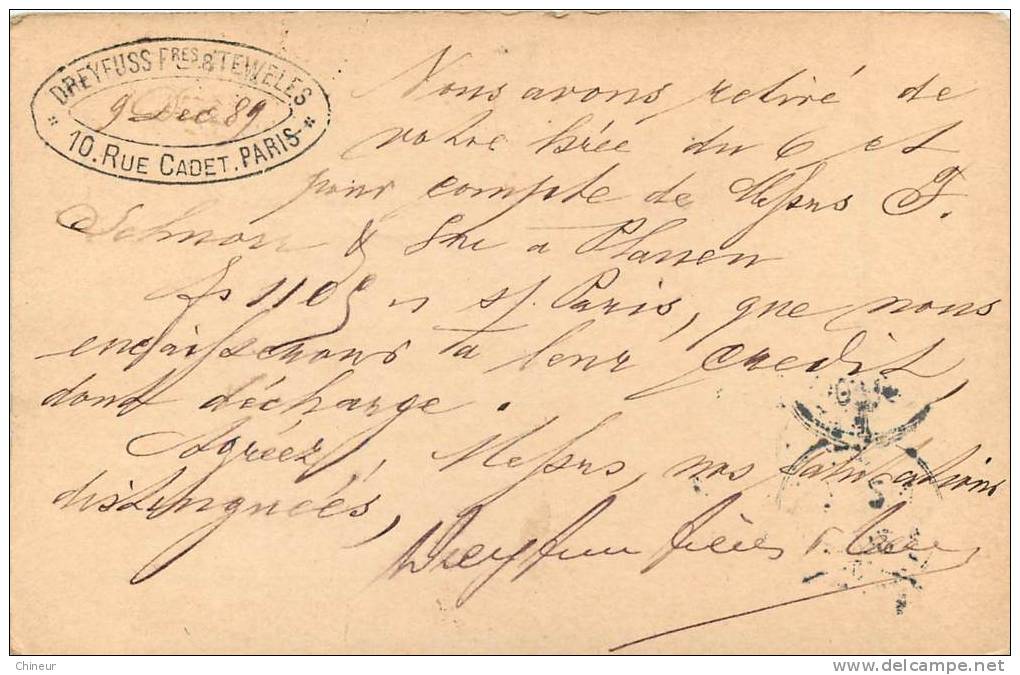 DREYFUSS FRES & TEWELES
9 Dec 89
10. RUE CADET. PARIS
Nous avons retiré de
votre hrée du 6 et
pour compte de Messrs F.
Schnorr & Sne a Plauen
fs 1109 s/. Paris, que nous
encaisserons a leur credit,
dont décharge.
Agréez, Messrs, nos salutations
distinguées,
Dreyfuss frères &
Chineur
delcampe.net